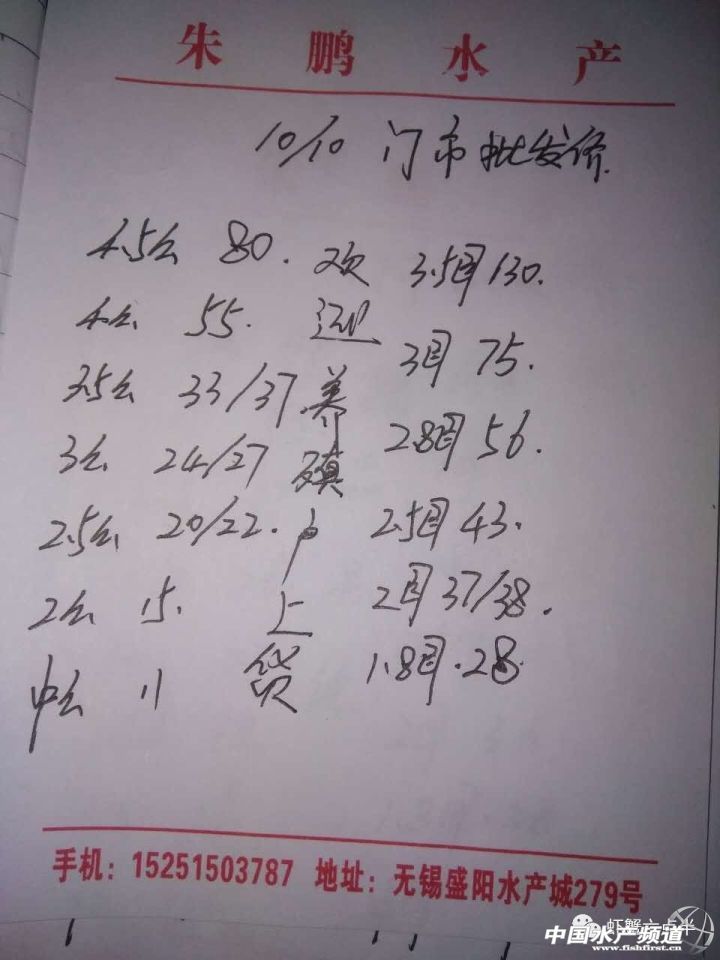 朱鹏水产
10/10 门市批发价.
4.5公 80.
4公 55.
3.5公 33/37
3公 24/27
2.5公 20/22.
2公 15.
中公 11
欢迎养殖户上货
3.5母 130.
3母 75.
2.8母 56.
2.5母 43.
2母 37/38.
1.8母.28.
手机：15251503787 地址：无锡盛阳水产城279号
虾蟹六点半
中国水产频道
www.fishfirst.cn